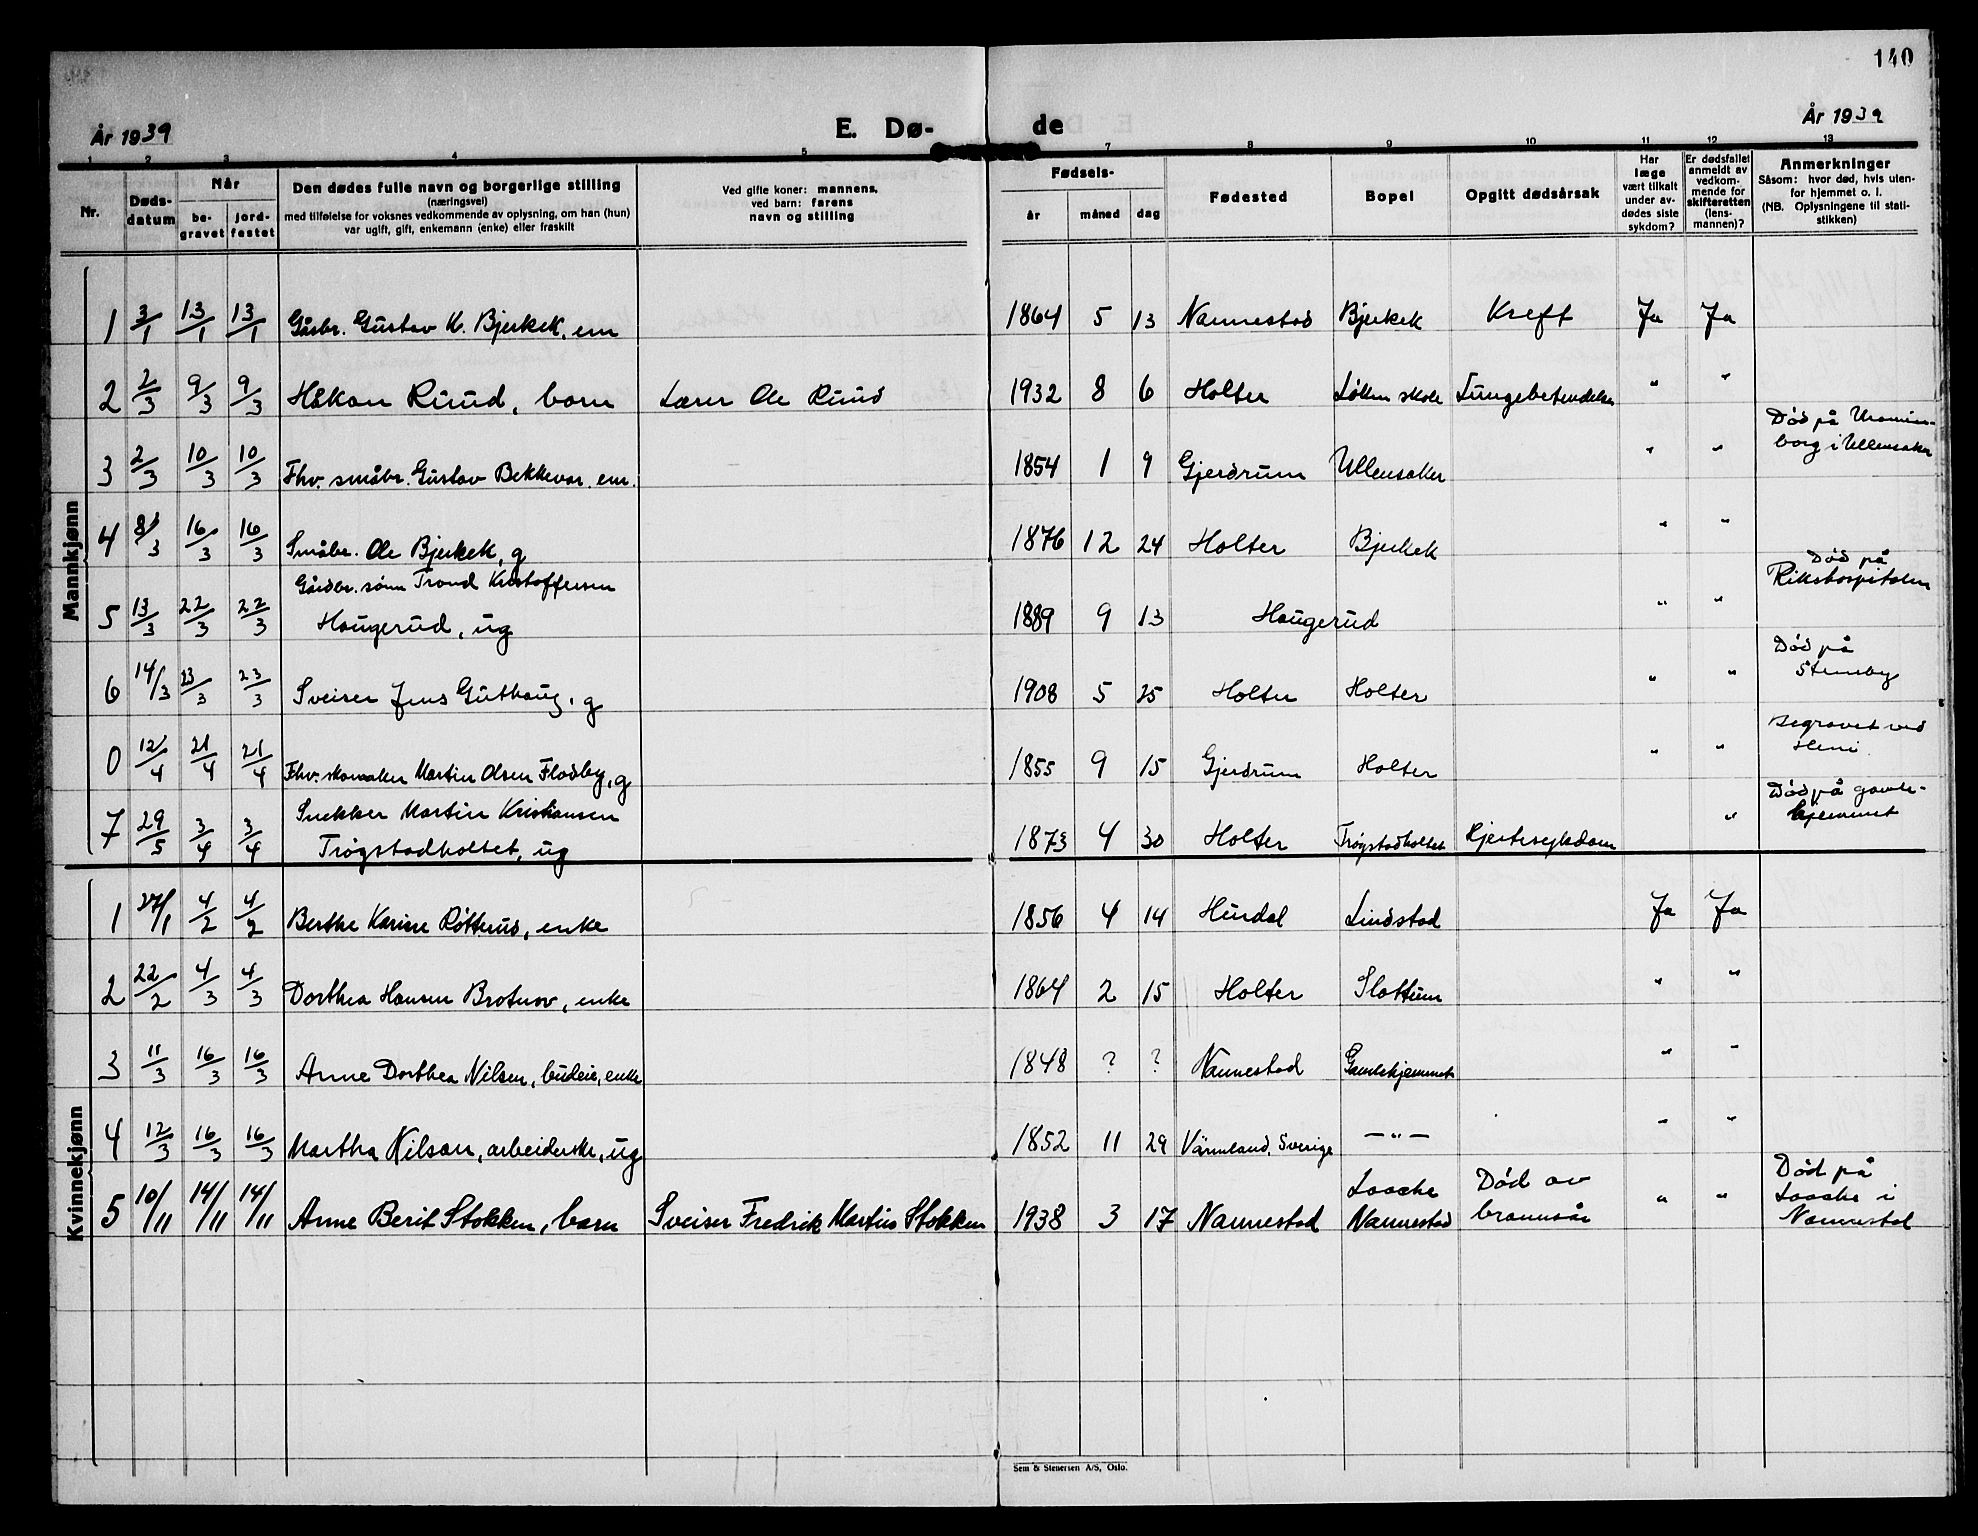 140
År 1939 E. Dø- de År 1939
1 2 3 4 5 7 8 9 10 11 12 13
Nr. Døds-datum Når be-gravet jord-festet Den dødes fulle navn og borgerlige stilling (næringsvei) med tilføielse for voksnes vedkommende av oplysning, om han (hun) var ugift, gift, enkemann (enke) eller fraskilt Ved gifte koner: mannens, ved barn: farens navn og stilling Fødsels- år måned dag Fødested Bopel Opgitt dødsårsak Har læge vært tilkalt under av-dødes siste sykdom? Er dødsfallet anmeldt av vedkom-mende for skifteretten (lens-mannen)? Anmerkninger Såsom: hvor død, hvis uten-for hjemmet o. l. (NB. Oplysningene til stati-stikken)
Mannkjønn
1 3/1 13/1 13/1 Gårbr. Gustav K. Bjerkek, em 1864 5 13 Nannestad Bjerkek Kreft Ja Ja
2 2/3 9/3 9/3 Håkon Ruud, barn Lærer Ole Ruud 1932 8 6 Holter Løken skole Lungebetendelse " "
3 2/3 10/3 10/3 Fhv. småbr. Gustav Bekkevar. em. 1854 1 9 Gjerdrum Ullensaker " " Død på
borg i Ullensaker
4 8/3 16/3 16/3 Småbr. Ole Bjerkek, g 1876 12 24 Holter Bjerkek " "
Gårdbr. sønn Trond Kristoffersen Død på
Rikshospitalen
5 13/3 22/3 22/3 Haugerud, ug 1889 9 13 Haugerud " "
6 14/3 23/3 23/3 Sveiser Jens Guthaug, g 1908 5 25 Holter Holter " " Død på
Stensby
0 12/4 21/4 21/4 Fhv. skomaker Martin Olsen Flodby, g 1855 9 15 Gjerdrum Holter " " Begravet ved
Heni
Snekker Martin Kristiansen Død på gamle-
hjemmet
7 29/5 3/4 3/4 Trøgstadholtet, ug 1873 4 30 Holter Trøgstadholtet Hjertesykdom "
Kvinnekjønn
1 27/1 4/2 4/2 Berthe Karine Røtterud, enke 1856 4 14 Hurdal Lindstad Ja Ja
2 22/2 4/3 4/3 Dorthea Hansen Brotnov, enke 1864 2 15 Holter Slottum " "
3 11/3 16/3 16/3 Anne Dorthea Nilsen, budeie, enke 1848 ? ? Nannestad Gamlehjemmet " "
4 12/3 16/3 16/3 Martha Nilson, arbeiderske, ug 1852 11 29 Värmland, Sverige — " — " "
5 10/11 14/11 14/11 Anne Berit Stokken, barn Sveiser Fredrik Martius Stokken 1938 3 17 Nannestad Laache Nannestad Død av brannsår " " Død på
Laache i
Nannestad
Sem & Stenersen A/S, Oslo.